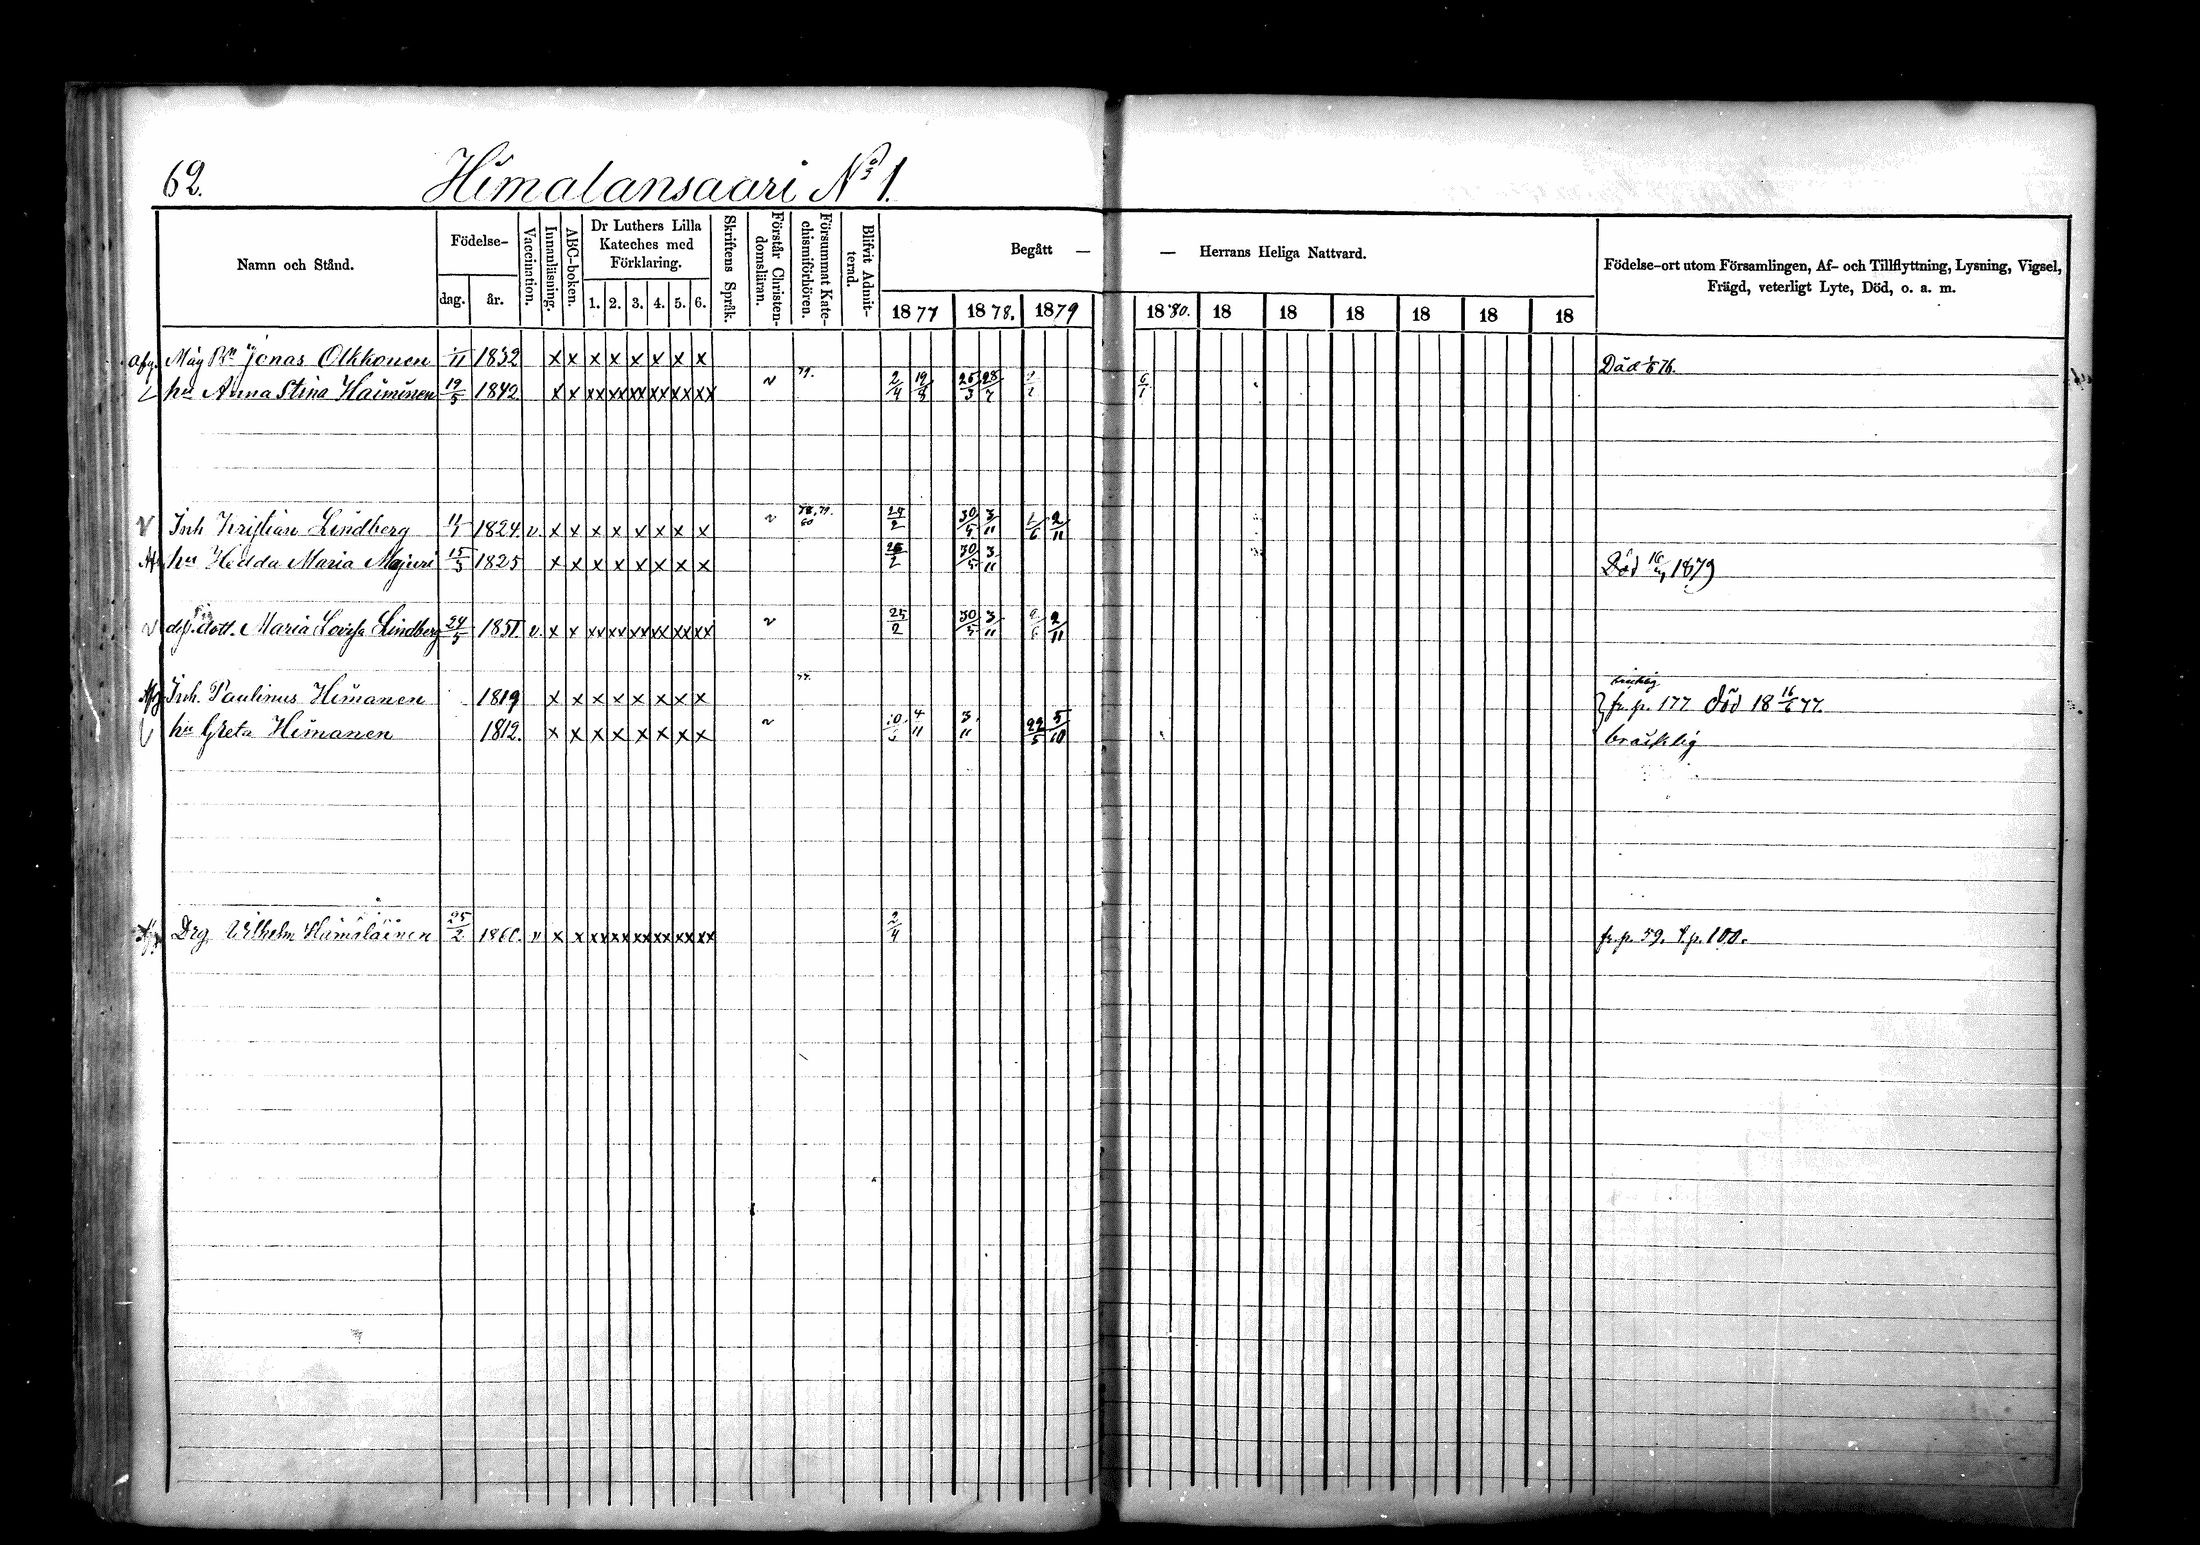 62.
Himalansaari No 1.
Namn och Stånd.
Födelse-
dag.
år.
Vaccination.
Innanläsning.
ABC-boken.
Dr Luthers Lilla
Kateches med
Förklaring.
1. 2. 3. 4. 5. 6.
Skriftens Språk.
Förstår Christen-
domsläran.
Försummat Kate-
chismiförhören.
Blifvit Admit-
terad.
Begått —
— Herrans Heliga Nattvard.
1877 1878. 1879 1880. 18 18 18 18 18 18
Födelse-ort utom Församlingen, Af- och Tillflyttning, Lysning, Vigsel,
Frägd, veterligt Lyte, Död, o. a. m.
Jonas Olkkonen 11 1832 x x x x x x x x Död 76.
hu Anna Stina Haiminen 19/5 1842 x x xx xx xx xx xx xx v 79. 2/4 19/8 25/3 28/7 6/1
v Inh Kristian Lindberg 1824. v. x x x x x x x x v 78, 79. 80 30/5 3/11 1/6 2/11
hu Hedda Maria Majuri 15/5 1825 x x x x x x x x 30/5 3/11 Död 1879
v dott. Maria Lovisa Lindberg 24/5 1851 v. x x xx xx xx xx xx xx v 25/2 30/5 3/11 2/11
Inh. Paulinus Himanen 1819 x x x x x x x x fr. p. 177 död 18 16/6 77.
hu Greta Himanen 1812. x x x x x x x x v 4/11 3/11 22/5 5/10 bräcklig
Drg Vilhelm Hämäläinen 25/2 1860. v x x xx xx xx xx xx xx 2/4 fr. p. 59. t. p. 100.